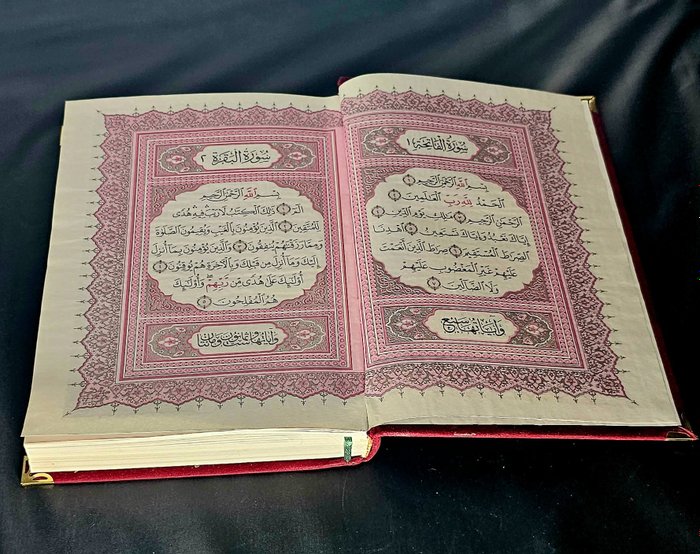 سُورَةُ الْفَاتِحَةِ ١
بِسْمِ اللَّهِ الرَّحْمَٰنِ الرَّحِيمِ ١
الْحَمْدُ لِلَّهِ رَبِّ الْعَالَمِينَ ٢
الرَّحْمَٰنِ الرَّحِيمِ ٣ مَالِكِ يَوْمِ الدِّينِ ٤
إِيَّاكَ نَعْبُدُ وَإِيَّاكَ نَسْتَعِينُ ٥ اهْدِنَا
الصِّرَاطَ الْمُسْتَقِيمَ ٦ صِرَاطَ الَّذِينَ أَنْعَمْتَ
عَلَيْهِمْ غَيْرِ الْمَغْضُوبِ عَلَيْهِمْ
وَلَا الضَّالِّينَ ٧
وَآيَاتُهَا سَبْعٌ
سُورَةُ الْبَقَرَةِ ٢
بِسْمِ اللَّهِ الرَّحْمَٰنِ الرَّحِيمِ
الم ١ ذَٰلِكَ الْكِتَابُ لَا رَيْبَ فِيهِ هُدًى
لِلْمُتَّقِينَ ٢ الَّذِينَ يُؤْمِنُونَ بِالْغَيْبِ وَيُقِيمُونَ الصَّلَوٰةَ
وَمِمَّا رَزَقْنَاهُمْ يُنْفِقُونَ ٣ وَالَّذِينَ يُؤْمِنُونَ بِمَا أُنْزِلَ
إِلَيْكَ وَمَا أُنْزِلَ مِنْ قَبْلِكَ وَبِالْآخِرَةِ هُمْ يُوقِنُونَ ٤
أُولَٰئِكَ عَلَىٰ هُدًى مِنْ رَبِّهِمْ وَأُولَٰئِكَ
هُمُ الْمُفْلِحُونَ ٥